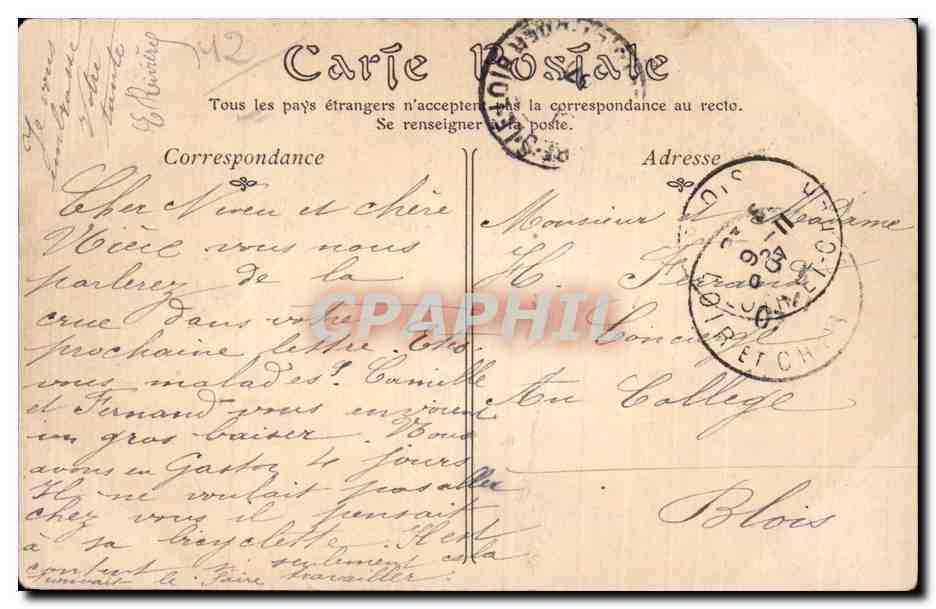 Je vous
embrasse
Votre
tante
E Rivière
42
Carte Postale
Tous les pays étrangers n'acceptent pas la correspondance au recto.
Se renseigner à la poste.
Correspondance
Cher Neveu et chère
Nièce vous nous
parlerez de la
crue dans votre
prochaine lettre. Etes
vous malades? Camille
et Fernand vous envoient
un gros baiser. Nous
avons eu Gaston 4 jours
Il ne voulait pas aller
chez vous il pensait
à sa bicyclette. Il est
content si seulement cela
pouvait le faire travailler.
Adresse
Monsieur et Madame
H. Ferrand
Concierge
Au College
Blois
CPAPHIL
LOIR ET CHER